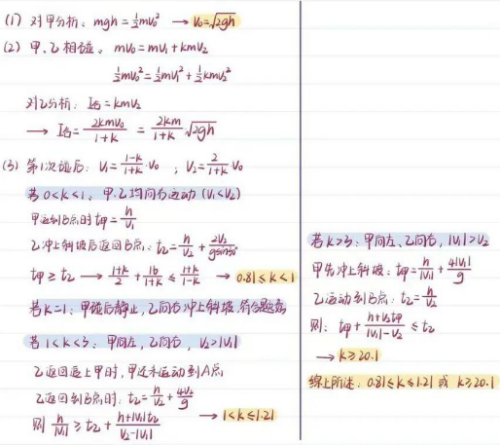 (1) 对甲分析: mgh = ½mv₀² → v₀=√2gh
(2) 甲、乙相碰。 mv₀ = mv₁ + kmv₂
½mv₀² = ½mv₁² + ½kmv₂²
对乙分析: I合 = kmv₂
→ I合 = 2kmv₀/(1+k) = 2km/(1+k) √2gh
(3) 第1次碰后: v₁ = (1-k)/(1+k)·v₀ ; v₂ = 2/(1+k) v₀
若 0<k<1, 甲、乙均向右运动 (v₁<v₂)
甲运动到B点时 t甲 = h/v₁
乙冲上斜坡后返回B点: t乙 = h/v₂ + 2v₂/gsinθ
t甲 ≥ t乙 → (1+k)/2 + 16/(1+k) ≤ (1+k)/(1-k) → 0.81 ≤ k < 1
若k=1: 甲碰后静止, 乙向右冲上斜坡, 符合题意
若 1<k<3: 甲向左, 乙向右, v₂>|v₁|
乙返回追上甲时, 甲还未运动到A点
乙返回到B点时: t乙 = h/v₂ + 4v₂/g
则 h/|v₁| ≥ t乙 + (h+|v₁|t乙)/(v₂-|v₁|) → 1<k≤1.21
若k>3: 甲向左、乙向右, |v₁|>v₂
甲先冲上斜坡: t甲 = h/|v₁| + 4|v₁|/g
乙运动到B点: t乙 = h/v₂
则: t甲 + (h+v₂t甲)/(|v₁|-v₂) ≤ t乙
→ k≥20.1
综上所述: 0.81≤k≤1.21 或 k≥20.1